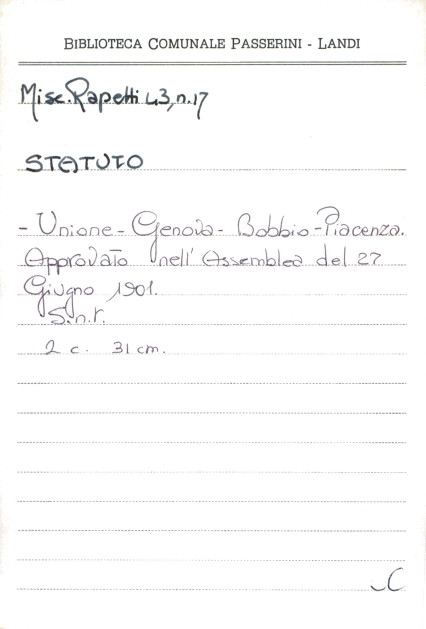 BIBLIOTECA COMUNALE PASSERINI - LANDI
Misc. Rapetti 43, n. 17
STATUTO
- Unione - Genova - Bobbio - Piacenza.
Approvato nell' Assemblea del 27
Giugno 1901.
S.n.t.
2 c. 31 cm.